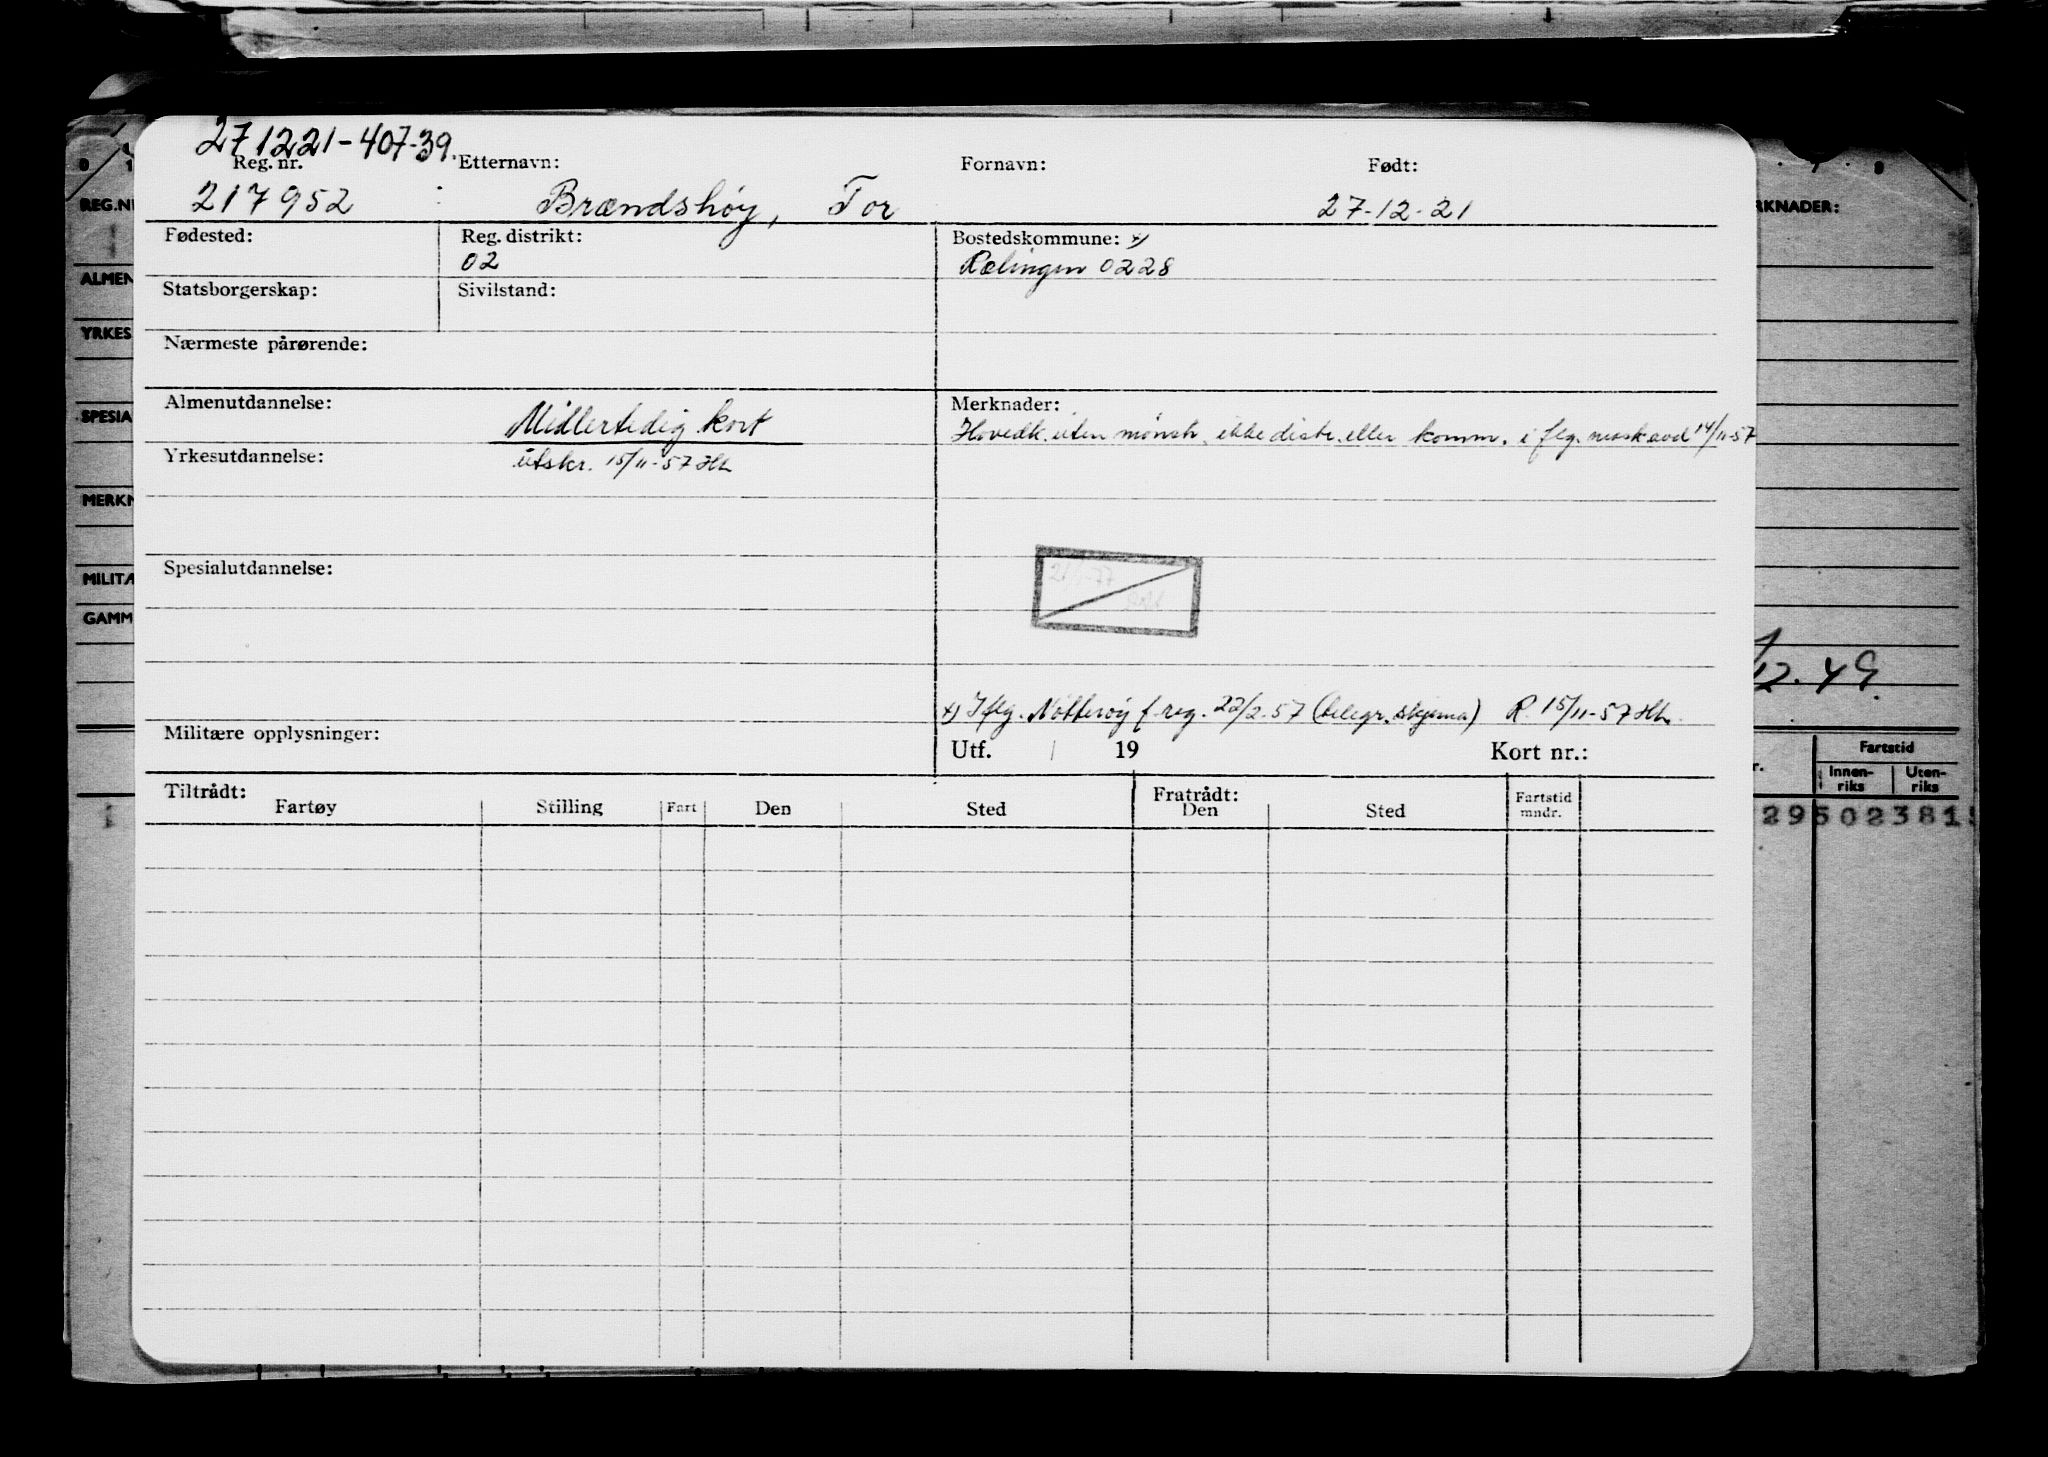 271221-407-39.
Reg. nr. Etternavn: Fornavn: Født:
217952 Brændshøy, Tor 27-12-21
Fødested: Reg. distrikt: Bostedskommune: x)
02 Rælingen 0228
Statsborgerskap: Sivilstand:
Nærmeste pårørende:
Almenutdannelse: Midlertidig kort Merknader:
Hovedk. uten mønstr. ikke distr. eller komm. i flg. mask.avd 14/11-57
Yrkesutdannelse: utskr. 15/11-57 Hh
Spesialutdannelse:
21/1-77
x) Iflg. Nøtterøy f.reg. 22/2-57 (belegr. skjema) R. 15/11-57 Hh.
Militære opplysninger: Utf. / 19 Kort nr.:
Tiltrådt: Fratrådt:
Fartøy Stilling Fart Den Sted Den Sted Fartstid
mndr.
0 1
REG.NR
ALMEN
YRKES
SPESIA
MERKN
MILITÆ
GAMM
9
RKNADER:
12.49.
r. Fartstid
Innen-
riks
Uten-
riks
295023815